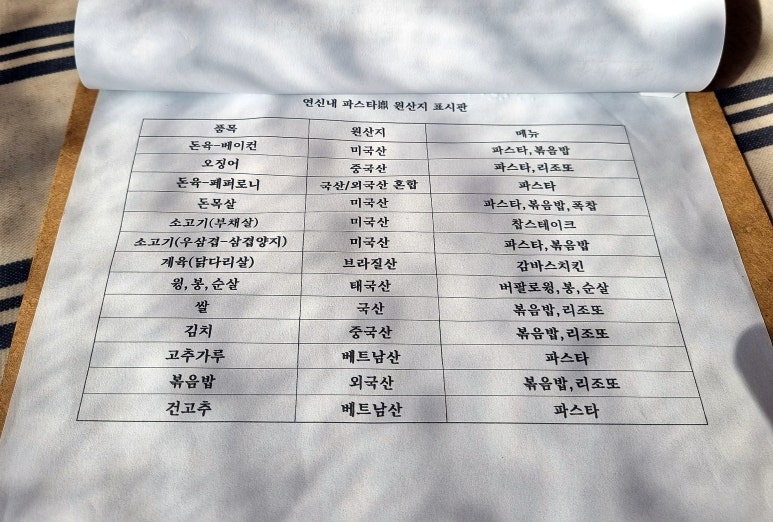 연신내 파스타鼎 원산지 표시판
품목 원산지 메뉴
돈육-베이컨 미국산 파스타,볶음밥
오징어 중국산 파스타,리조또
돈육-페퍼로니 국산/외국산 혼합 파스타
돈목살 미국산 파스타,볶음밥,폭찹
소고기(부채살) 미국산 찹스테이크
소고기(우삼겹-삼겹양지) 미국산 파스타,볶음밥
계육(닭다리살) 브라질산 감바스치킨
윙,봉,순살 태국산 버팔로윙,봉,순살
쌀 국산 볶음밥,리조또
김치 중국산 볶음밥,리조또
고추가루 베트남산 파스타
볶음밥 외국산 볶음밥,리조또
건고추 베트남산 파스타